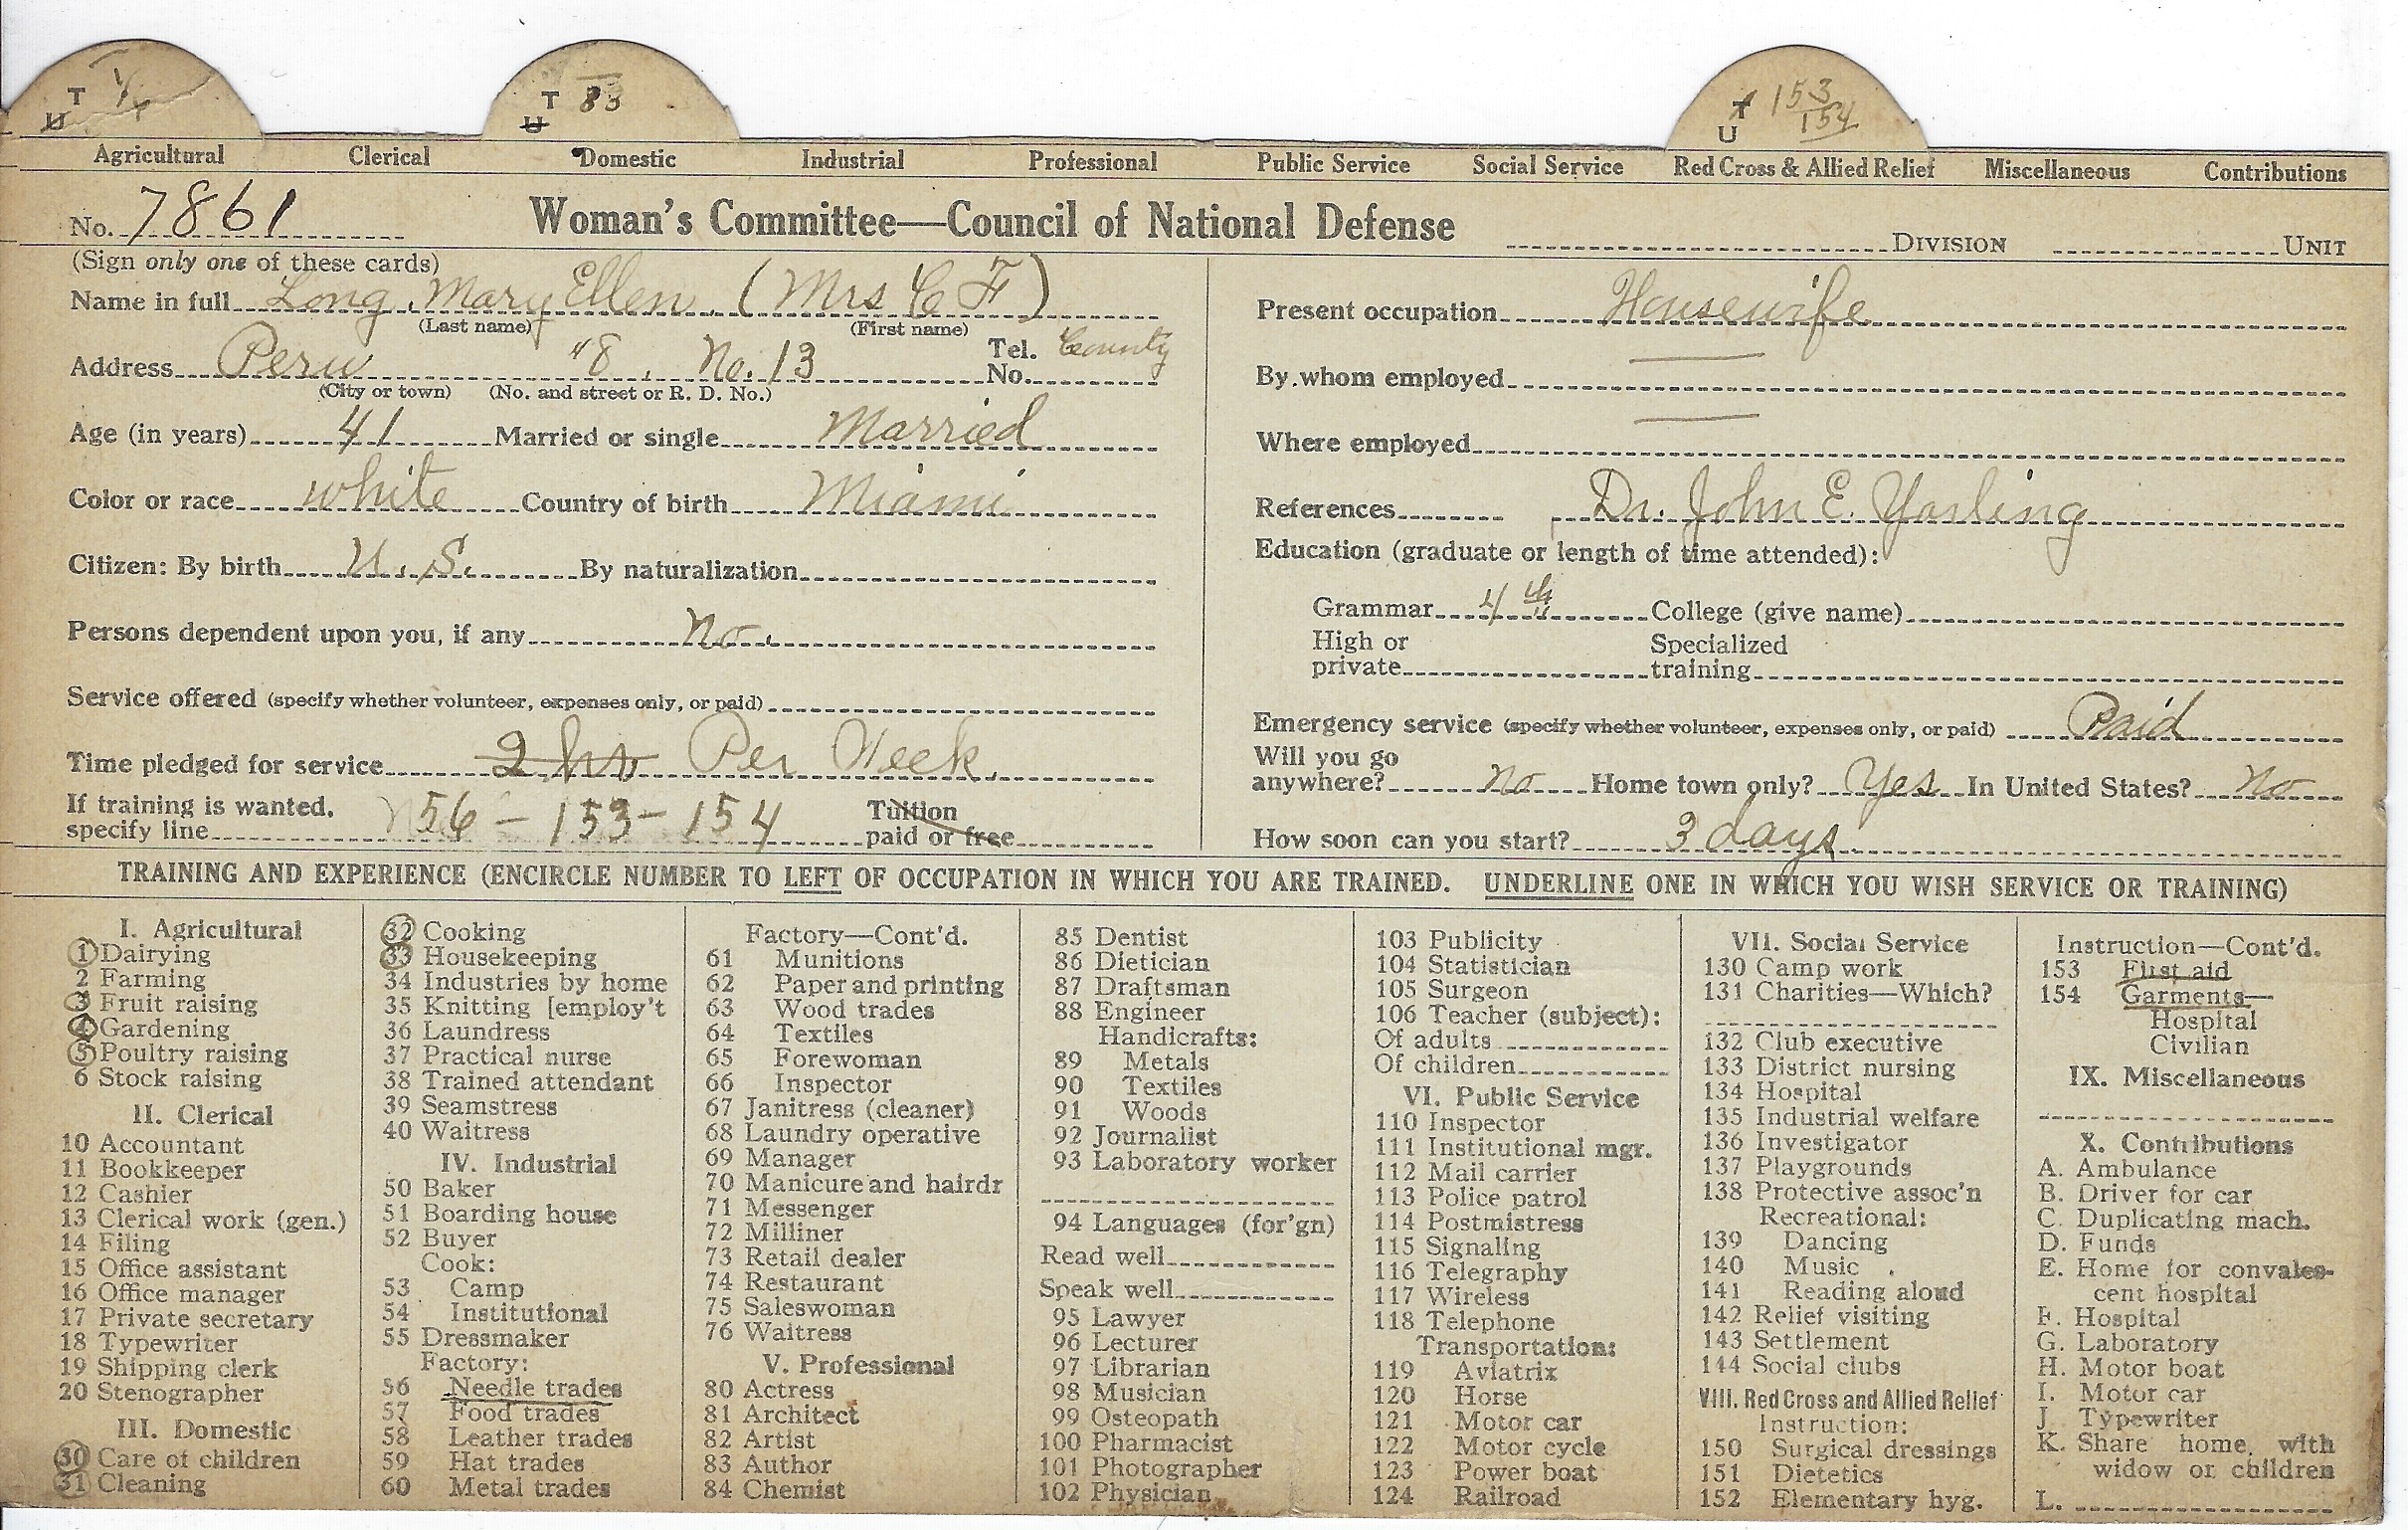 T 1/4
U
T 33
U
T 153
U 154
Agricultural Clerical Domestic Industrial Professional Public Service Social Service Red Cross & Allied Relief Miscellaneous Contributions
No. 7861 Woman's Committee—Council of National Defense DIVISION UNIT
(Sign only one of these cards)
Name in full Long, Mary Ellen, (Mrs C F)
(Last name) (First name)
Address Peru "8, No. 13 Tel. No. County
(City or town) (No. and street or R. D. No.)
Age (in years) 41 Married or single Married
Color or race white Country of birth Miami
Citizen: By birth U. S. By naturalization
Persons dependent upon you, if any no.
Service offered (specify whether volunteer, expenses only, or paid)
Time pledged for service 2 hr Per Week
If training is wanted, specify line 56 - 153 - 154 Tuition paid or free
Present occupation Housewife
By whom employed —
Where employed —
References Dr. John E. Yarling
Education (graduate or length of time attended):
Grammar 4th College (give name)
High or private Specialized training
Emergency service (specify whether volunteer, expenses only, or paid) Paid
Will you go anywhere? no Home town only? Yes In United States? No
How soon can you start? 3 days
TRAINING AND EXPERIENCE (ENCIRCLE NUMBER TO LEFT OF OCCUPATION IN WHICH YOU ARE TRAINED. UNDERLINE ONE IN WHICH YOU WISH SERVICE OR TRAINING)
I. Agricultural
1 Dairying
2 Farming
3 Fruit raising
4 Gardening
5 Poultry raising
6 Stock raising
II. Clerical
10 Accountant
11 Bookkeeper
12 Cashier
13 Clerical work (gen.)
14 Filing
15 Office assistant
16 Office manager
17 Private secretary
18 Typewriter
19 Shipping clerk
20 Stenographer
III. Domestic
30 Care of children
31 Cleaning
32 Cooking
33 Housekeeping
34 Industries by home
35 Knitting [employ't
36 Laundress
37 Practical nurse
38 Trained attendant
39 Seamstress
40 Waitress
IV. Industrial
50 Baker
51 Boarding house
52 Buyer
Cook:
53 Camp
54 Institutional
55 Dressmaker
Factory:
56 Needle trades
57 Food trades
58 Leather trades
59 Hat trades
60 Metal trades
Factory—Cont'd.
61 Munitions
62 Paper and printing
63 Wood trades
64 Textiles
65 Forewoman
66 Inspector
67 Janitress (cleaner)
68 Laundry operative
69 Manager
70 Manicure and hairdr
71 Messenger
72 Milliner
73 Retail dealer
74 Restaurant
75 Saleswoman
76 Waitress
V. Professional
80 Actress
81 Architect
82 Artist
83 Author
84 Chemist
85 Dentist
86 Dietician
87 Draftsman
88 Engineer
Handicrafts:
89 Metals
90 Textiles
91 Woods
92 Journalist
93 Laboratory worker
94 Languages (for'gn)
Read well
Speak well
95 Lawyer
96 Lecturer
97 Librarian
98 Musician
99 Osteopath
100 Pharmacist
101 Photographer
102 Physician
103 Publicity
104 Statistician
105 Surgeon
106 Teacher (subject):
Of adults
Of children
VI. Public Service
110 Inspector
111 Institutional mgr.
112 Mail carrier
113 Police patrol
114 Postmistress
115 Signaling
116 Telegraphy
117 Wireless
118 Telephone
Transportation:
119 Aviatrix
120 Horse
121 Motor car
122 Motor cycle
123 Power boat
124 Railroad
VII. Social Service
130 Camp work
131 Charities—Which?
132 Club executive
133 District nursing
134 Hospital
135 Industrial welfare
136 Investigator
137 Playgrounds
138 Protective assoc'n
Recreational:
139 Dancing
140 Music
141 Reading aloud
142 Relief visiting
143 Settlement
144 Social clubs
VIII. Red Cross and Allied Relief
Instruction:
150 Surgical dressings
151 Dietetics
152 Elementary hyg.
Instruction—Cont'd.
153 First aid
154 Garments—
Hospital
Civilian
IX. Miscellaneous
X. Contributions
A. Ambulance
B. Driver for car
C. Duplicating mach.
D. Funds
E. Home for convales-
cent hospital
F. Hospital
G. Laboratory
H. Motor boat
I. Motor car
J. Typewriter
K. Share home with
widow or children
L.